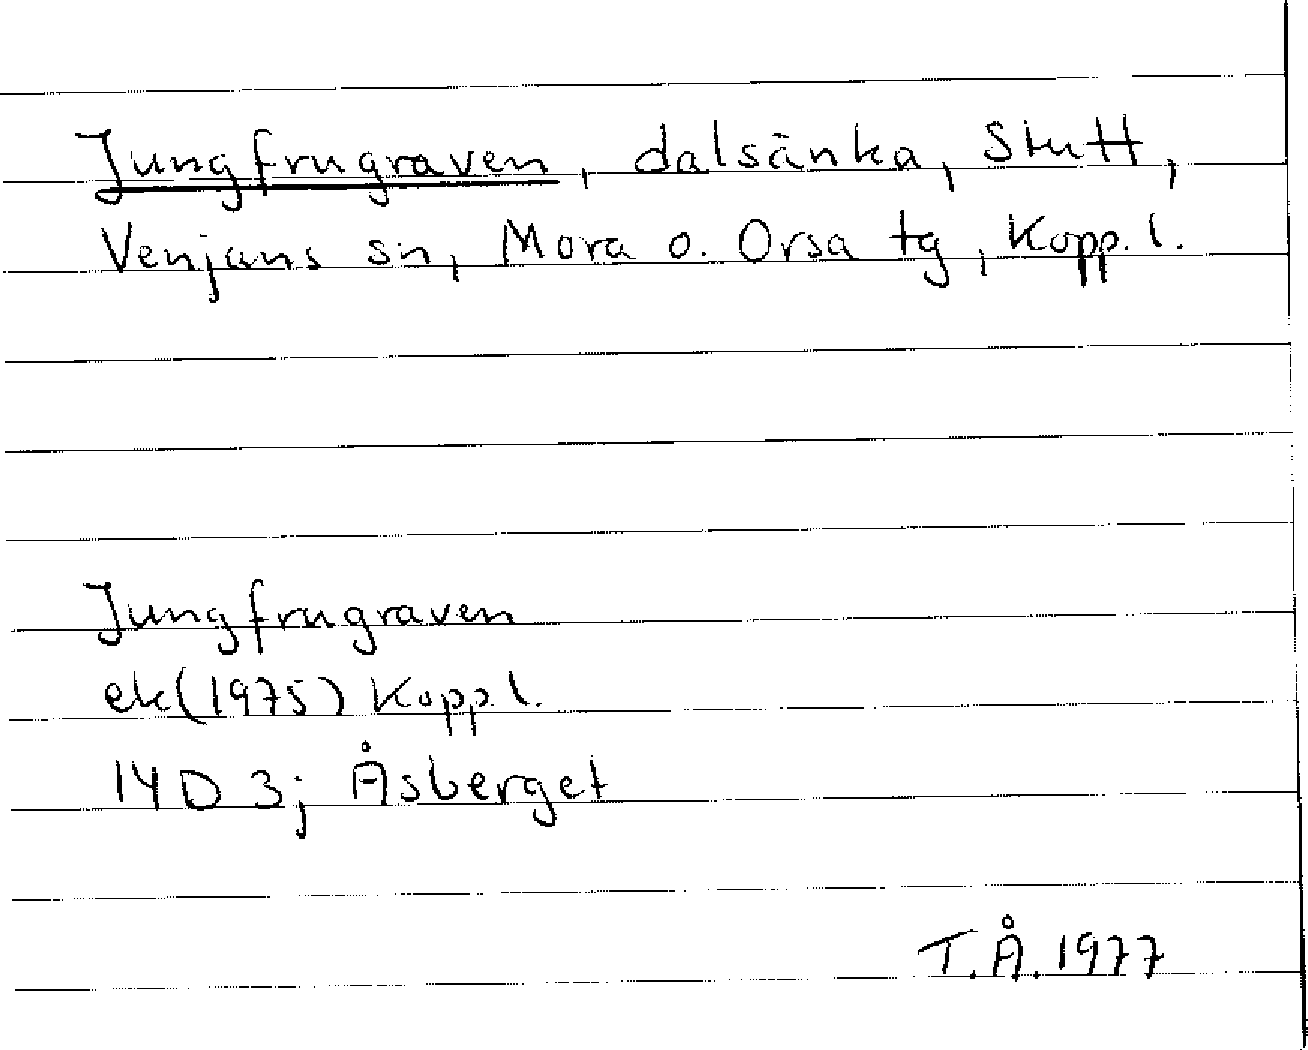 Jungfrugraven, dalsänka, Stutt,
Venjans sn, Mora o. Orsa tg, Kopp. l.
Jungfrugraven
ek (1975) Kopp. l.
14D 3j Åsberget
T.Å. 1977